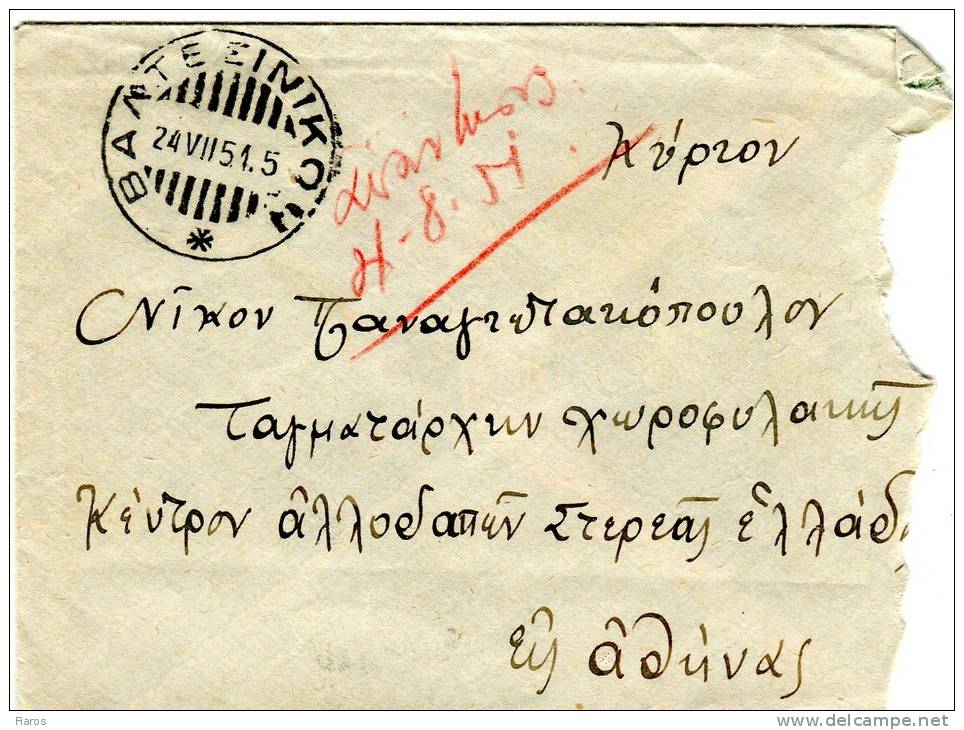 ΒΑΛΤΕΣΙΝΙΚΟΥ
24 VII 51.5
4-8-51
Κύριον
Νῖκον Παναγιωτακόπουλον
Ταγματάρχην χωροφυλακῆς
Κέντρον ἀλλοδαπῶν Στερεᾶς Ἑλλάδ
Εἰς Ἀθήνας
Raros
www.delcampe.net